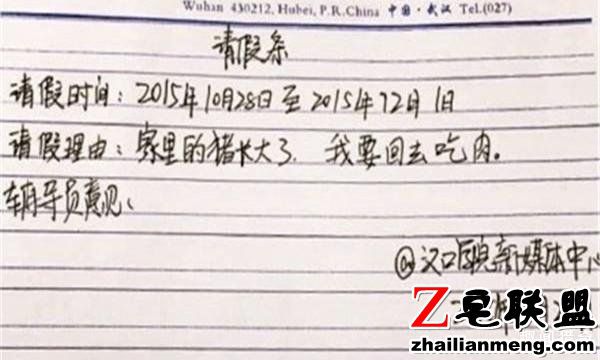 Wuhan 430212, Hubei, P.R.China 中国·武汉 Tel.(027)
请假条
请假时间：2015年10月28日至2015年12月1日
请假理由：家里的猪长大了，我要回去吃肉。
辅导员意见：
@汉口学院新媒体中心
Z宅联盟
zhailianmeng.com